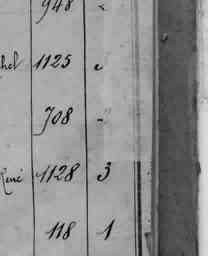 948 "
hel 1125 "
708 "
René 1128 3
118 1